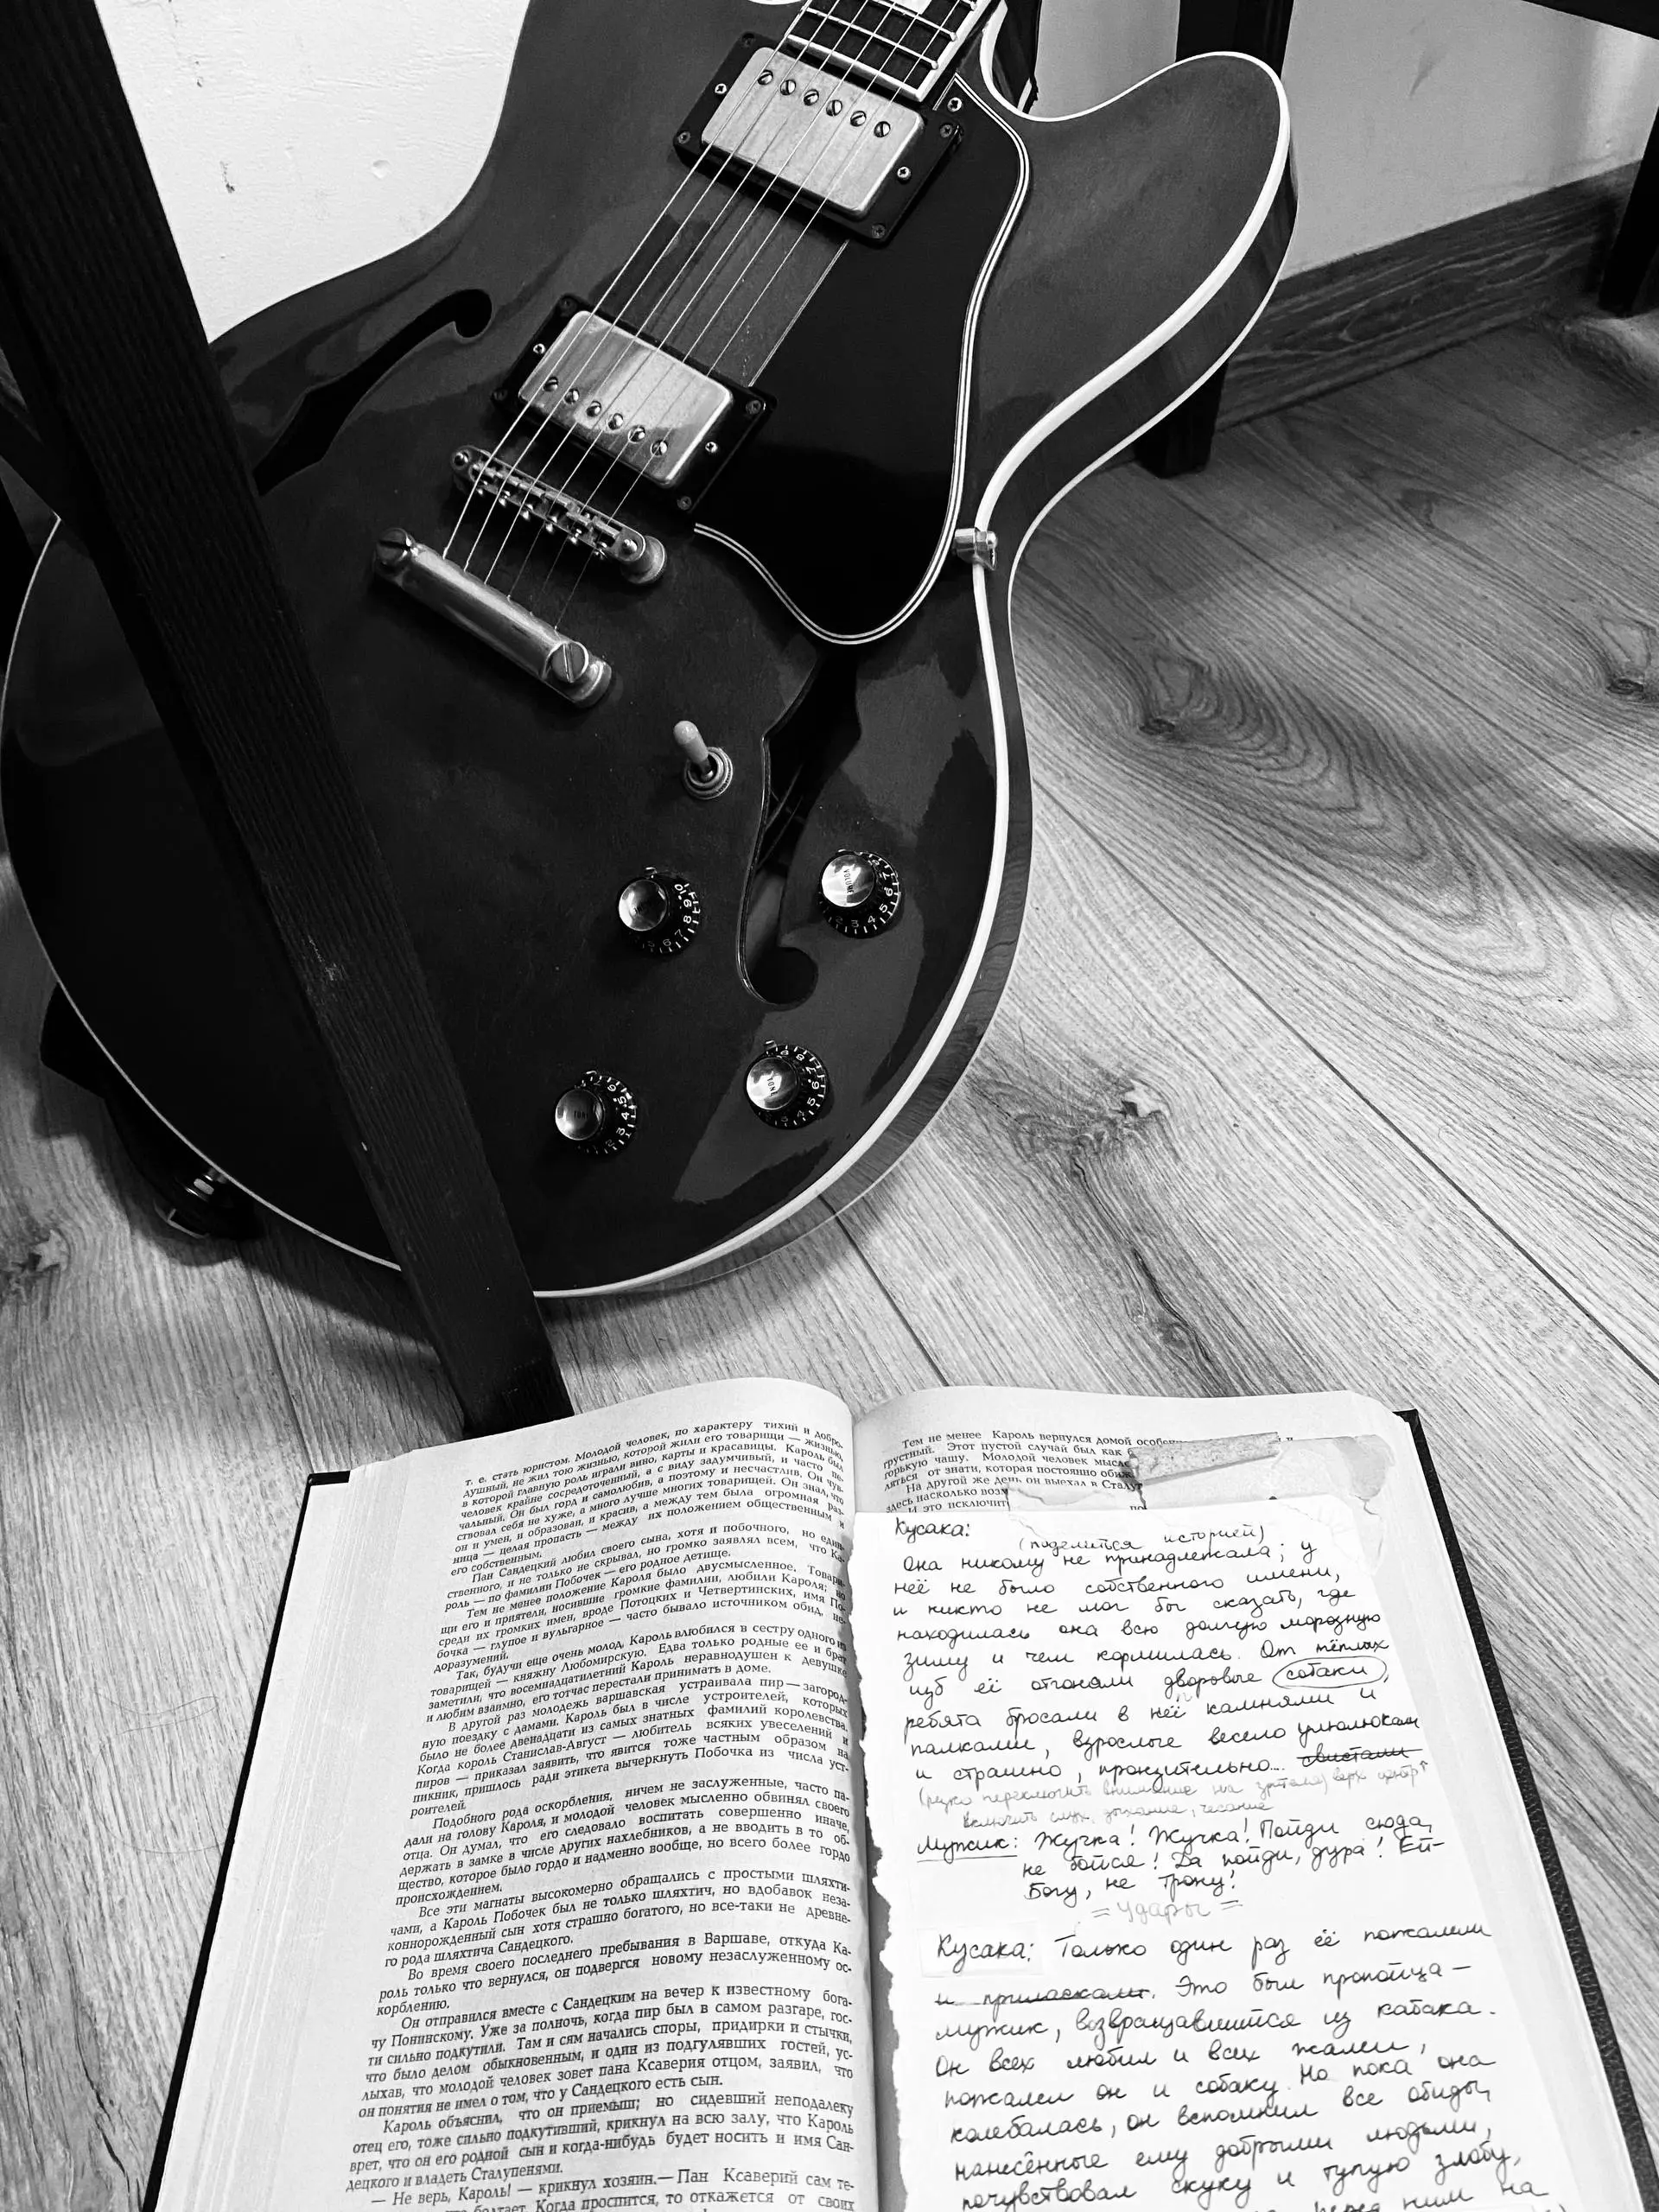 VOLUME
TONE
т. е. стать юристом. Молодой человек, по характеру тихий и добро-
душный, не жил тою жизнью, которой жили его товарищи — жизнью,
в которой главную роль играли вино, карты и красавицы. Кароль был
человек крайне сосредоточенный, а с виду задумчивый, и часто пе-
чальный. Он был горд и самолюбив, а поэтому и несчастлив. Он чув-
ствовал себя не хуже, а много лучше многих товарищей. Он знал, что
он и умен, и образован, и красив, а между тем была огромная раз-
ница — целая пропасть — между их положением общественным и
его собственным.
Пан Сандецкий любил своего сына, хотя и побочного, но един-
ственного, и не только не скрывал, но громко заявлял всем, что Ка-
роль — по фамилии Побочек — его родное детище.
Тем не менее положение Кароля было двусмысленное. Товари-
щи его и приятели, носившие громкие фамилии, любили Кароля; но
среди их громких имен, вроде Потоцких и Четвертинских, имя По-
бочка — глупое и вульгарное — часто бывало источником обид, не-
доразумений.
Так, будучи еще очень молод, Кароль влюбился в сестру одного из
товарищей — княжну Любомирскую. Едва только родные ее и брат
заметили, что восемнадцатилетний Кароль неравнодушен к девушке
и любим взаимно, его тотчас перестали принимать в доме.
В другой раз молодежь варшавская устраивала пир — загород-
ную поездку с дамами. Кароль был в числе устроителей, которых
было не более двенадцати из самых знатных фамилий королевства.
Когда король Станислав-Август — любитель всяких увеселений и
пиров — приказал заявить, что явится тоже частным образом на
пикник, пришлось ради этикета вычеркнуть Побочка из числа уст-
роителей.
Подобного рода оскорбления, ничем не заслуженные, часто па-
дали на голову Кароля, и молодой человек мысленно обвинял своего
отца. Он думал, что его следовало воспитать совершенно иначе,
держать в замке в числе других нахлебников, а не вводить в то об-
щество, которое было гордо и надменно вообще, но всего более гордо
происхождением.
Все эти магнаты высокомерно обращались с простыми шляхти-
чами, а Кароль Побочек был не только шляхтич, но вдобавок неза-
коннорожденный сын хотя страшно богатого, но все-таки не древне-
го рода шляхтича Сандецкого.
Во время своего последнего пребывания в Варшаве, откуда Ка-
роль только что вернулся, он подвергся новому незаслуженному ос-
корблению.
Он отправился вместе с Сандецким на вечер к известному бога-
чу Понинскому. Уже за полночь, когда пир был в самом разгаре, гос-
ти сильно подкутили. Там и сям начались споры, придирки и стычки,
что было делом обыкновенным, и один из подгулявших гостей, ус-
лыхав, что молодой человек зовет пана Ксаверия отцом, заявил, что
он понятия не имел о том, что у Сандецкого есть сын.
Кароль объяснил, что он приемыш; но сидевший неподалеку
отец его, тоже сильно подкутивший, крикнул на всю залу, что Кароль
врет, что он его родной сын и когда-нибудь будет носить и имя Сан-
децкого и владеть Сталупенями.
— Не верь, Кароль! — крикнул хозяин.— Пан Ксаверий сам те-
болтает. Когда проспится, то откажется от своих
Тем не менее Кароль вернулся домой
грустный. Этот пустой случай был как
горькую чашу. Молодой человек
ляться от знати, которая постоянно
На другой же день он выехал в
здесь насколько
И это
Кусака:
(поделиться историей)
Она никому не принадлежала; у
неё не было собственного имени,
и никто не мог бы сказать, где
находилась она всю долгую морозную
зиму и чем кормилась. От тёплых
изб её отгоняли дворовые собаки,
ребята бросали в неё камнями и
палками, взрослые весело улюлюкали
и страшно, пронзительно... свистали
(резко переключить внимание на зрителя) верх центр ↑
включить слух, дыхание, чесание
Мужик: Жучка! Жучка! Пойди сюда,
не бойся! Да пойди, дура! Ей-
Богу, не трону!
= Удары =
Кусака: Только один раз её пожалели
и приласкали. Это был пропойца-
мужик, возвращавшийся из кабака.
Он всех любил и всех жалел,
пожалел он и собаку. Но пока она
колебалась, он вспомнил все обиды,
нанесённые ему добрыми людьми,
почувствовал скуку и тупую злобу,
перед ним на